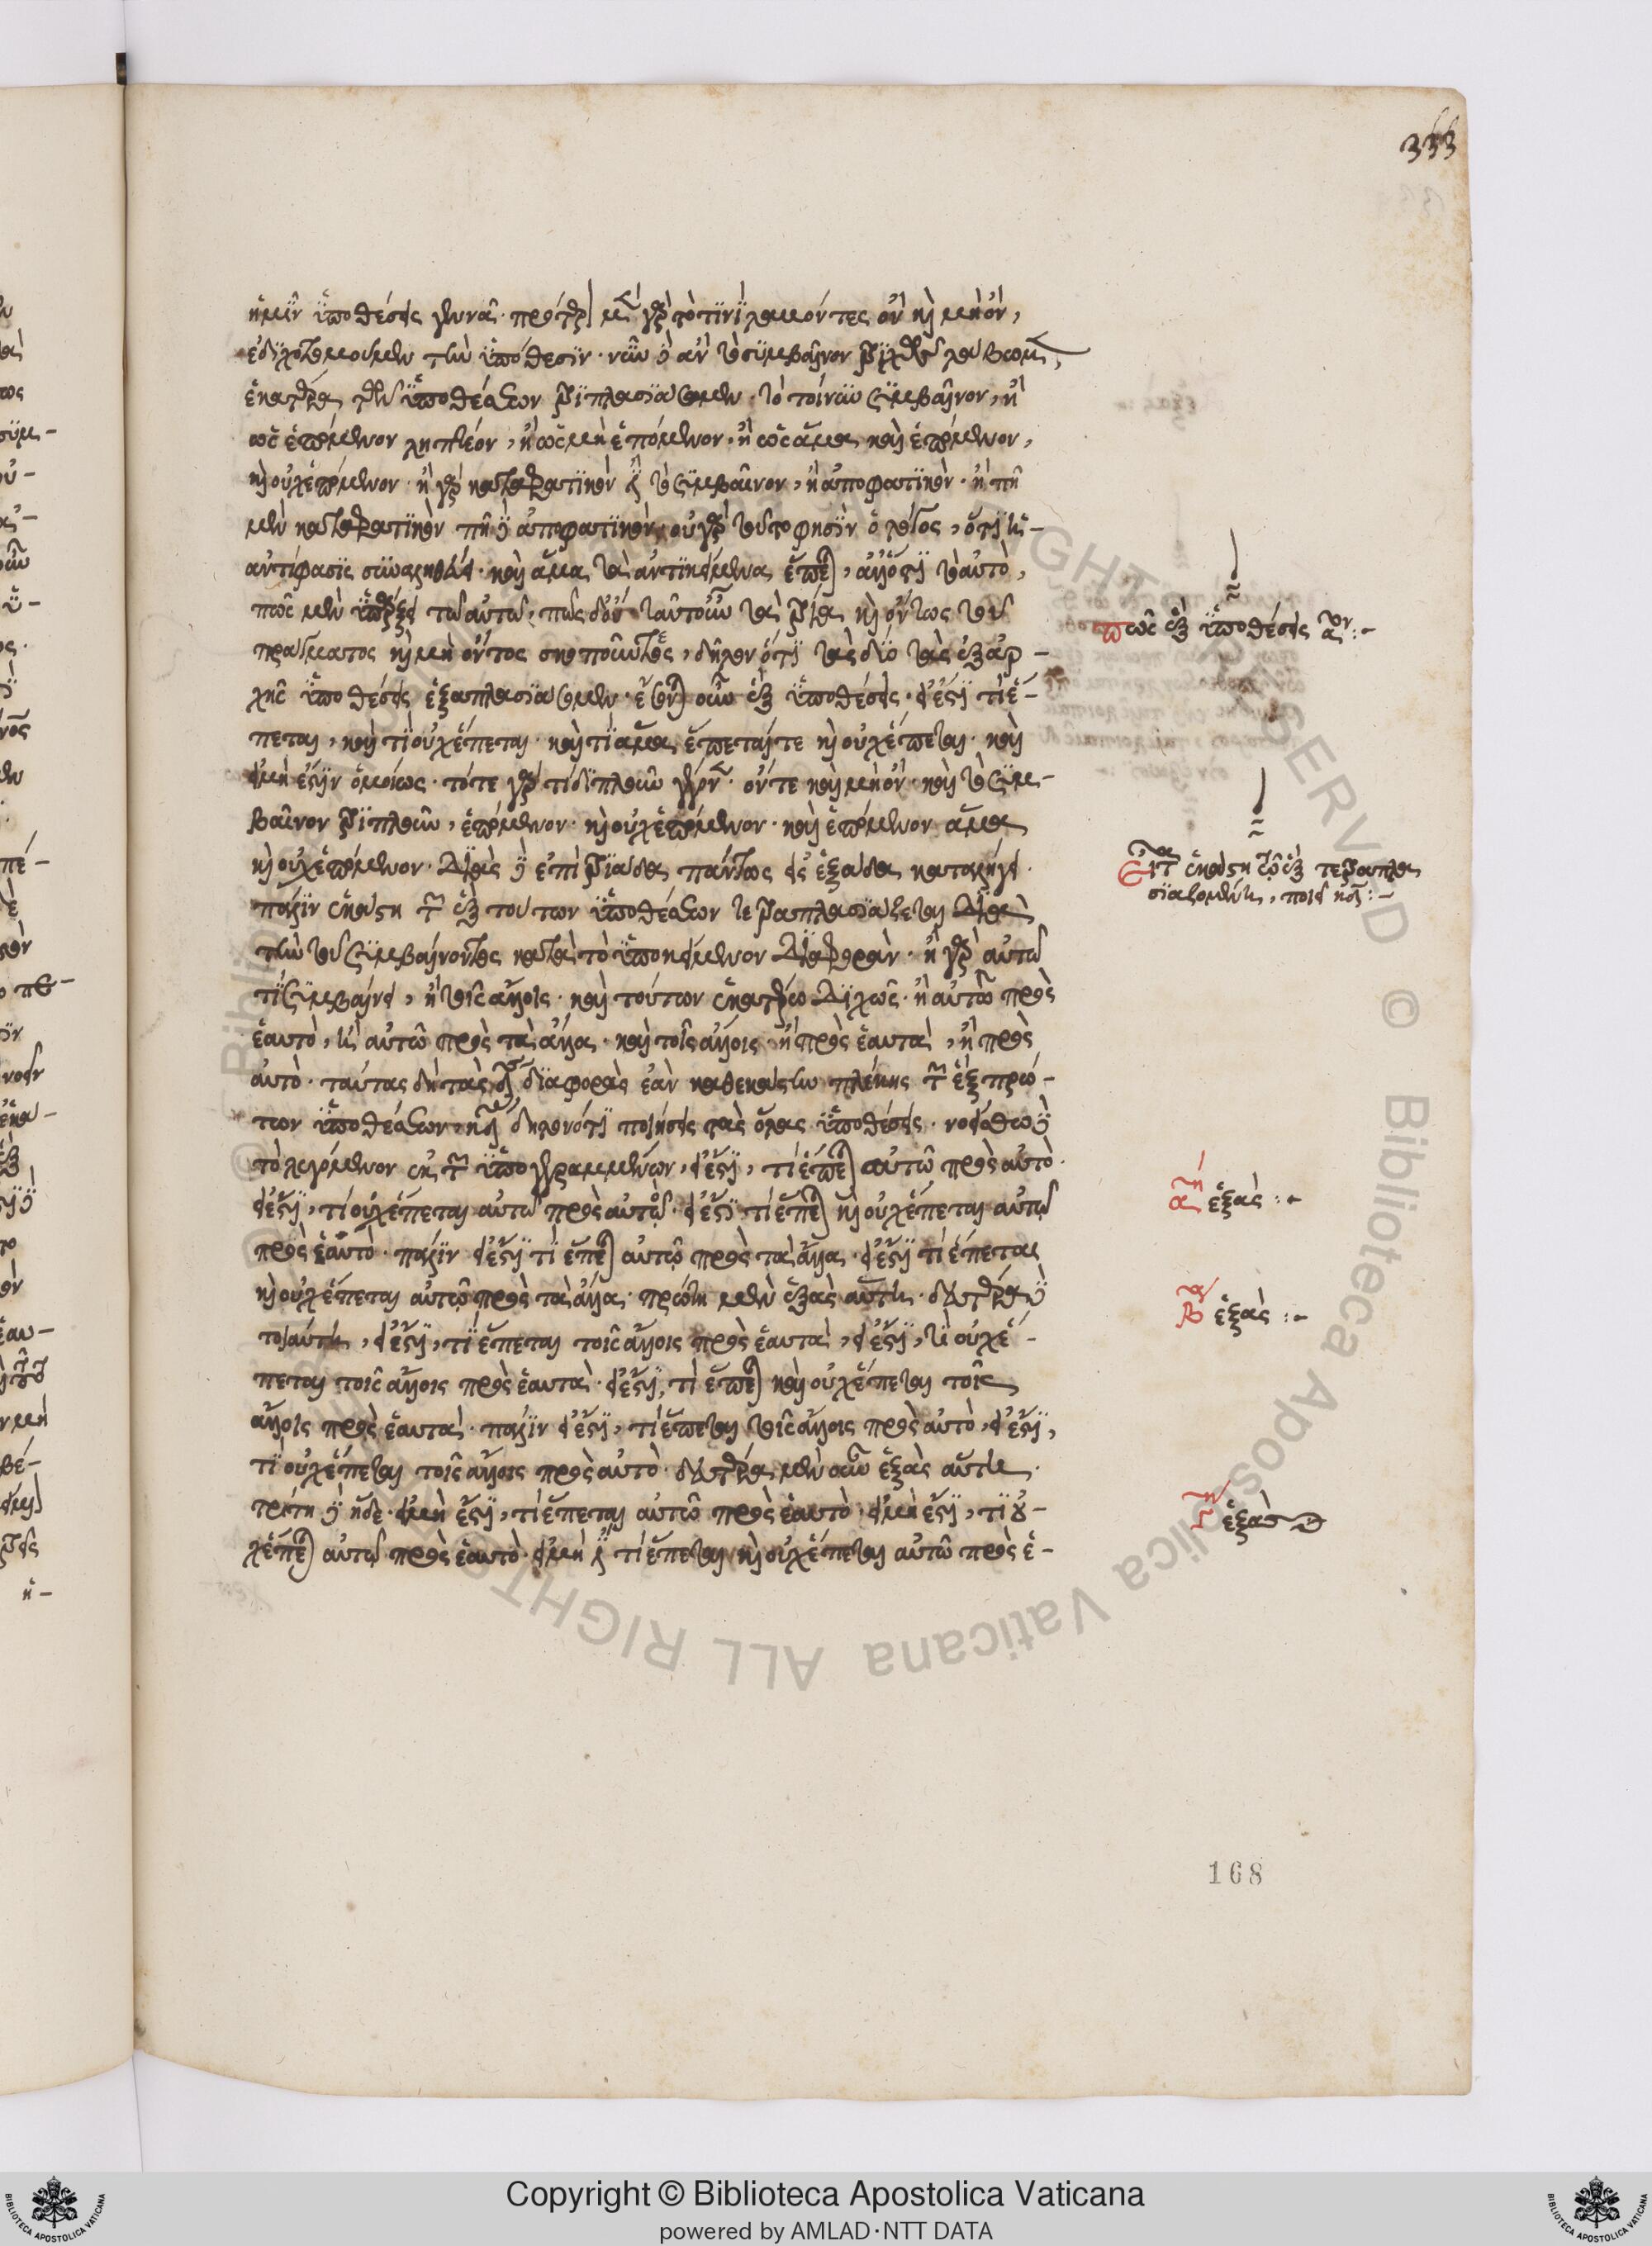 333
ἡμῖν ὑποθέσεις γεννᾷ· πρότερον μὲν γὰρ τὸ τινὶ λαμβάνοντες ὂν καὶ μὴ ὂν,
ἐδιχοτομοῦμεν τὴν ὑπόθεσιν· νῦν δὲ ἂν τὸ συμβαῖνον τριχῶς λάβωμεν,
ἑκατέραν τῶν ὑποθέσεων τριπλασιάσομεν· τὸ τοίνυν συμβαῖνον, ἢ
ὡς ἑπόμενον ληπτέον, ἢ ὡς μὴ ἑπόμενον, ἢ ὡς ἅμα καὶ ἑπόμενον,
καὶ οὐχ ἑπόμενον· ἢ γὰρ καταφατικόν ἐστι τὸ συμβαῖνον, ἢ ἀποφατικὸν· ἢ πῆ
μὲν καταφατικὸν πῆ δὲ ἀποφατικόν· οὐ γὰρ τοῦτο φησὶν ὁ λόγος, ὅτι ἡ
ἀντίφασις συναληθεύει· καὶ ἅμα τὰ ἀντικείμενα ἕπεται, ἀλλ' ὅτι τὸ αὐτὸ,
πῶς μὲν ὑπάρχει τῷ αὐτῷ, πῶς δὲ οὔ· ταῦτ' οὖν τὰ τρία καὶ ὄντως τοῦ
πράγματος καὶ μὴ ὄντος σκοποῦντες, δῆλον ὅτι τὰς δύο τὰς ἐξ ἀρ-
χῆς ὑποθέσεις ἑξαπλασιάσομεν· ἔσονται οὖν ἓξ ὑποθέσεις· εἰ ἔστι τί ἕ-
πεται, καὶ τί οὐχ ἕπεται· καὶ τί ἅμα ἕπεταί τε καὶ οὐχ ἕπεται· καὶ
εἰ μὴ ἔστιν ὁμοίως· τότε γὰρ τι διπλοῦν ὄν τε καὶ μὴ ὄν· καὶ τὸ συμ-
βαῖνον τριπλοῦν, ἑπόμενον· καὶ οὐχ ἑπόμενον· καὶ ἑπόμενον ἅμα
καὶ οὐχ ἑπόμενον· δυὰς δὲ ἐπὶ τριάδα πάντως εἰς ἑξάδα καταλήγει.
πάλιν ἑκάστη τῶν ἓξ τούτων ὑποθέσεων τετραπλασιάζεται διὰ
τὴν τοῦ συμβαίνοντος κατὰ τὸ ὑποκείμενον διαφορὰν· ἢ γὰρ αὐτῷ
τι συμβαίνει, ἢ τοῖς ἄλλοις· καὶ τούτων ἑκατέρῳ διχῶς· ἢ αὐτῷ πρὸς
ἑαυτὸ, ἢ αὐτῷ πρὸς τὰ ἄλλα· καὶ τοῖς ἄλλοις ἢ πρὸς ἑαυτὰ, ἢ πρὸς
αὐτὸ· ταύτας δὴ τὰς διαφορὰς ἐὰν καθ' ἑκάστην πλέκῃς τῶν ἓξ πρώ-
των ὑποθέσεων, δηλονότι ποιήσεις τὰς ὅλας ὑποθέσεις· νοείσθω δὲ
τὸ λεγόμενον ἐκ τῶν ὑπογραμμένων, εἰ ἔστι, τί ἕπεται αὐτῷ πρὸς αὐτὸ.
εἰ ἔστι, τί οὐχ ἕπεται αὐτῷ πρὸς αὐτὸ· εἰ ἔστι τί ἕπεται καὶ οὐχ ἕπεται αὐτῷ
πρὸς ἑαυτὸ· πάλιν εἰ ἔστι τί ἕπεται αὐτῷ πρὸς τὰ ἄλλα· εἰ ἔστι τί ἕπεται
καὶ οὐχ ἕπεται αὐτῷ πρὸς τὰ ἄλλα· πρώτη μὲν ἑξὰς αὕτη· δευτέρα δὲ
τοιαύτη, εἰ ἔστι, τί ἕπεται τοῖς ἄλλοις πρὸς ἑαυτὰ, εἰ ἔστι, τί οὐχ ἕ-
πεται τοῖς ἄλλοις πρὸς ἑαυτὰ· εἰ ἔστι, τί ἕπεται καὶ οὐχ ἕπεται τοῖς
ἄλλοις πρὸς ἑαυτά· πάλιν εἰ ἔστι, τί ἕπεται τοῖς ἄλλοις πρὸς αὐτὸ, εἰ ἔστι,
τί οὐχ ἕπεται τοῖς ἄλλοις πρὸς αὐτὸ· δευτέρα μὲν οὖν ἑξὰς αὕτη.
τρίτη δὲ ἥδε· εἰ μὴ ἔστι, τί ἕπεται αὐτῷ πρὸς ἑαυτὸ· εἰ μὴ ἔστι, τί οὐ-
χ ἕπεται αὐτῷ πρὸς ἑαυτὸ· εἰ μὴ ἔστι τί ἕπεται καὶ οὐχ ἕπεται αὐτῷ πρὸς ἑ-
πῶς ἓξ ὑποθέσεις
ἑκάστη τῶν ἓξ τετραπλα
σιαζομένη, ποιεῖ κδ:-
αη ἑξὰς :-
βα ἑξὰς :-
γη ἑξὰς
168
Copyright © Biblioteca Apostolica Vaticana
powered by AMLAD·NTT DATA